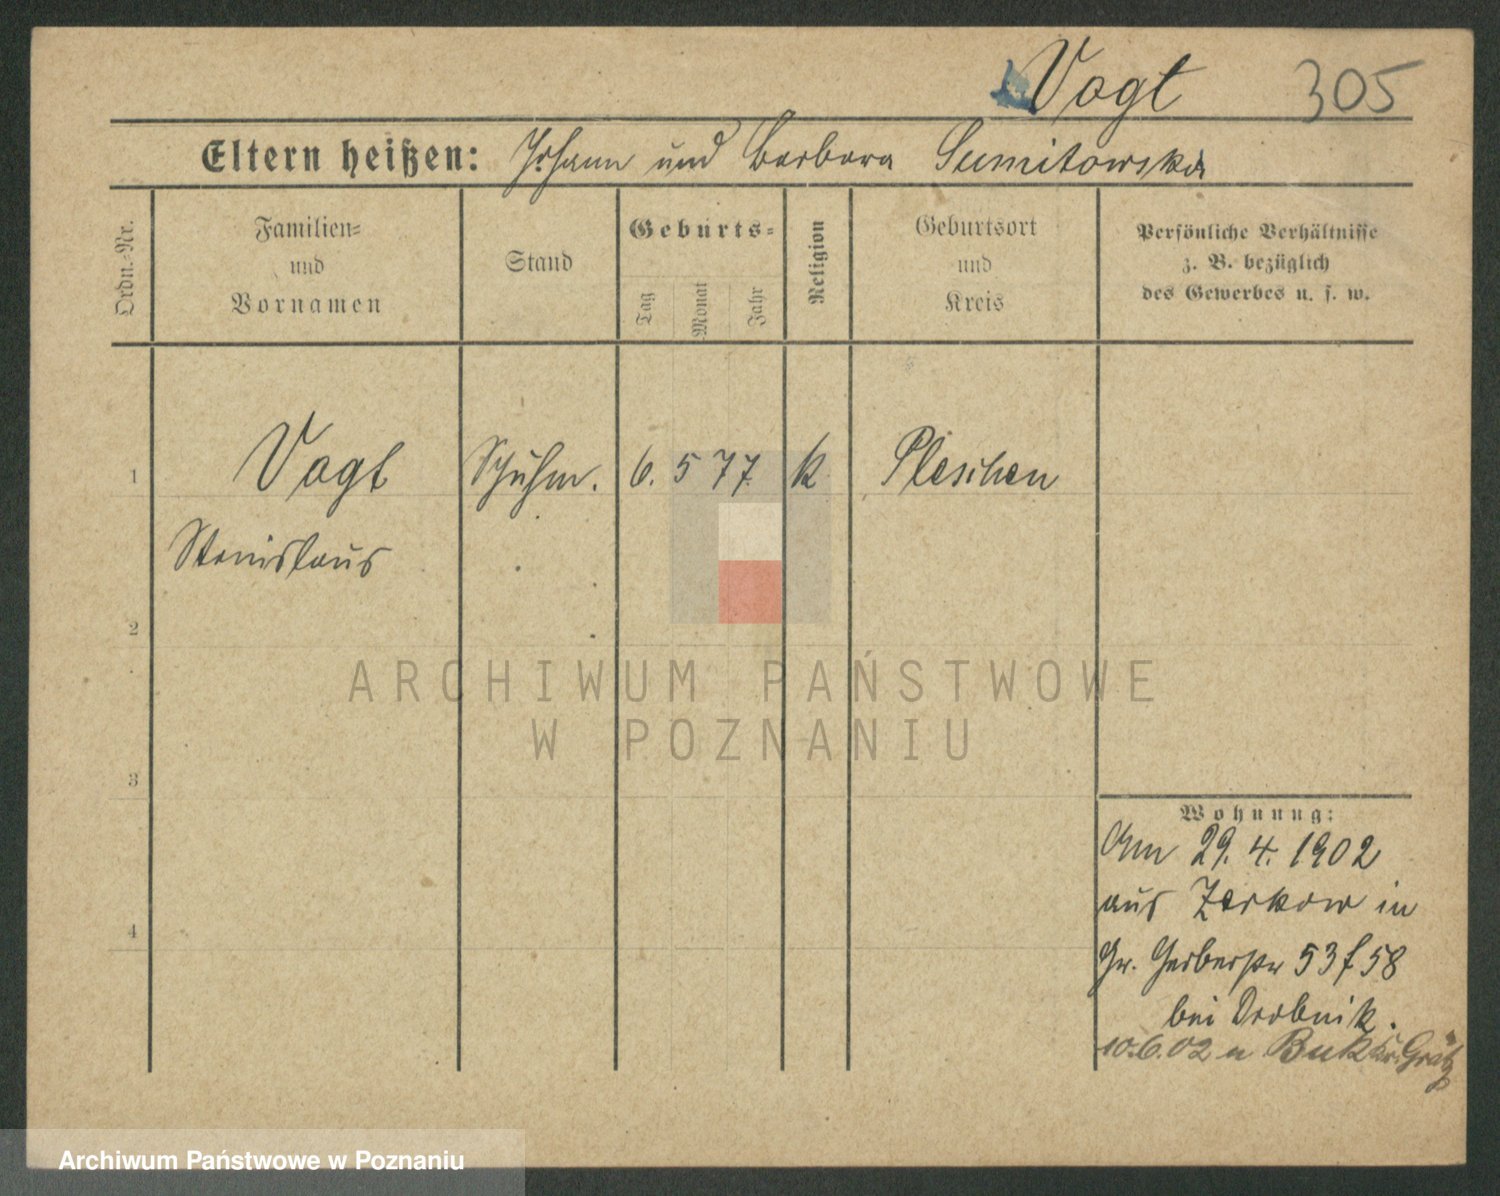 Vogt 305
Eltern heißen: Johann und Barbara Sumitowska
Ordn.-Nr.
Familien=
und
Vornamen
Stand
Geburts=
Tag
Monat
Jahr
Religion
Geburtsort
und
Kreis
Persönliche Verhältnisse
z. B. bezüglich
des Gewerbes u. s. w.
1 Vogt Schuhm. 6. 5 77 k Pleschen
Stanislaus
2
3
4
Wohnung:
Am 29. 4. 1902
aus Zerkow in
Gr. Gerberstr 53/58
bei Drobnik.
10.6.02 n Buk Kr. Grätz
ARCHIWUM PAŃSTWOWE
W POZNANIU
Archiwum Państwowe w Poznaniu